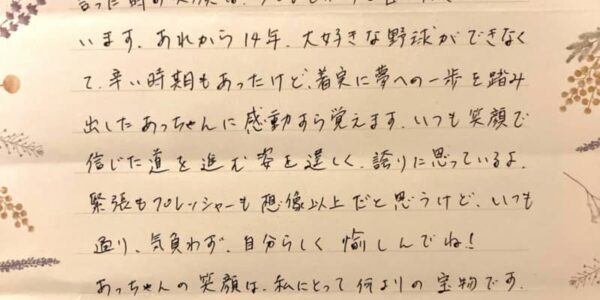 います。あれから14年。大好きな野球ができなく
て、辛い時期もあったけど、着実に夢への一歩を踏み
出したあっちゃんに感動すら覚えます。いつも笑顔で
信じた道を進む姿を逞しく、誇りに思っているよ。
緊張もプレッシャーも想像以上だと思うけど、いつも
通り、気負わず、自分らしく愉しんでね！
あっちゃんの笑顔は、私にとって何よりの宝物です。